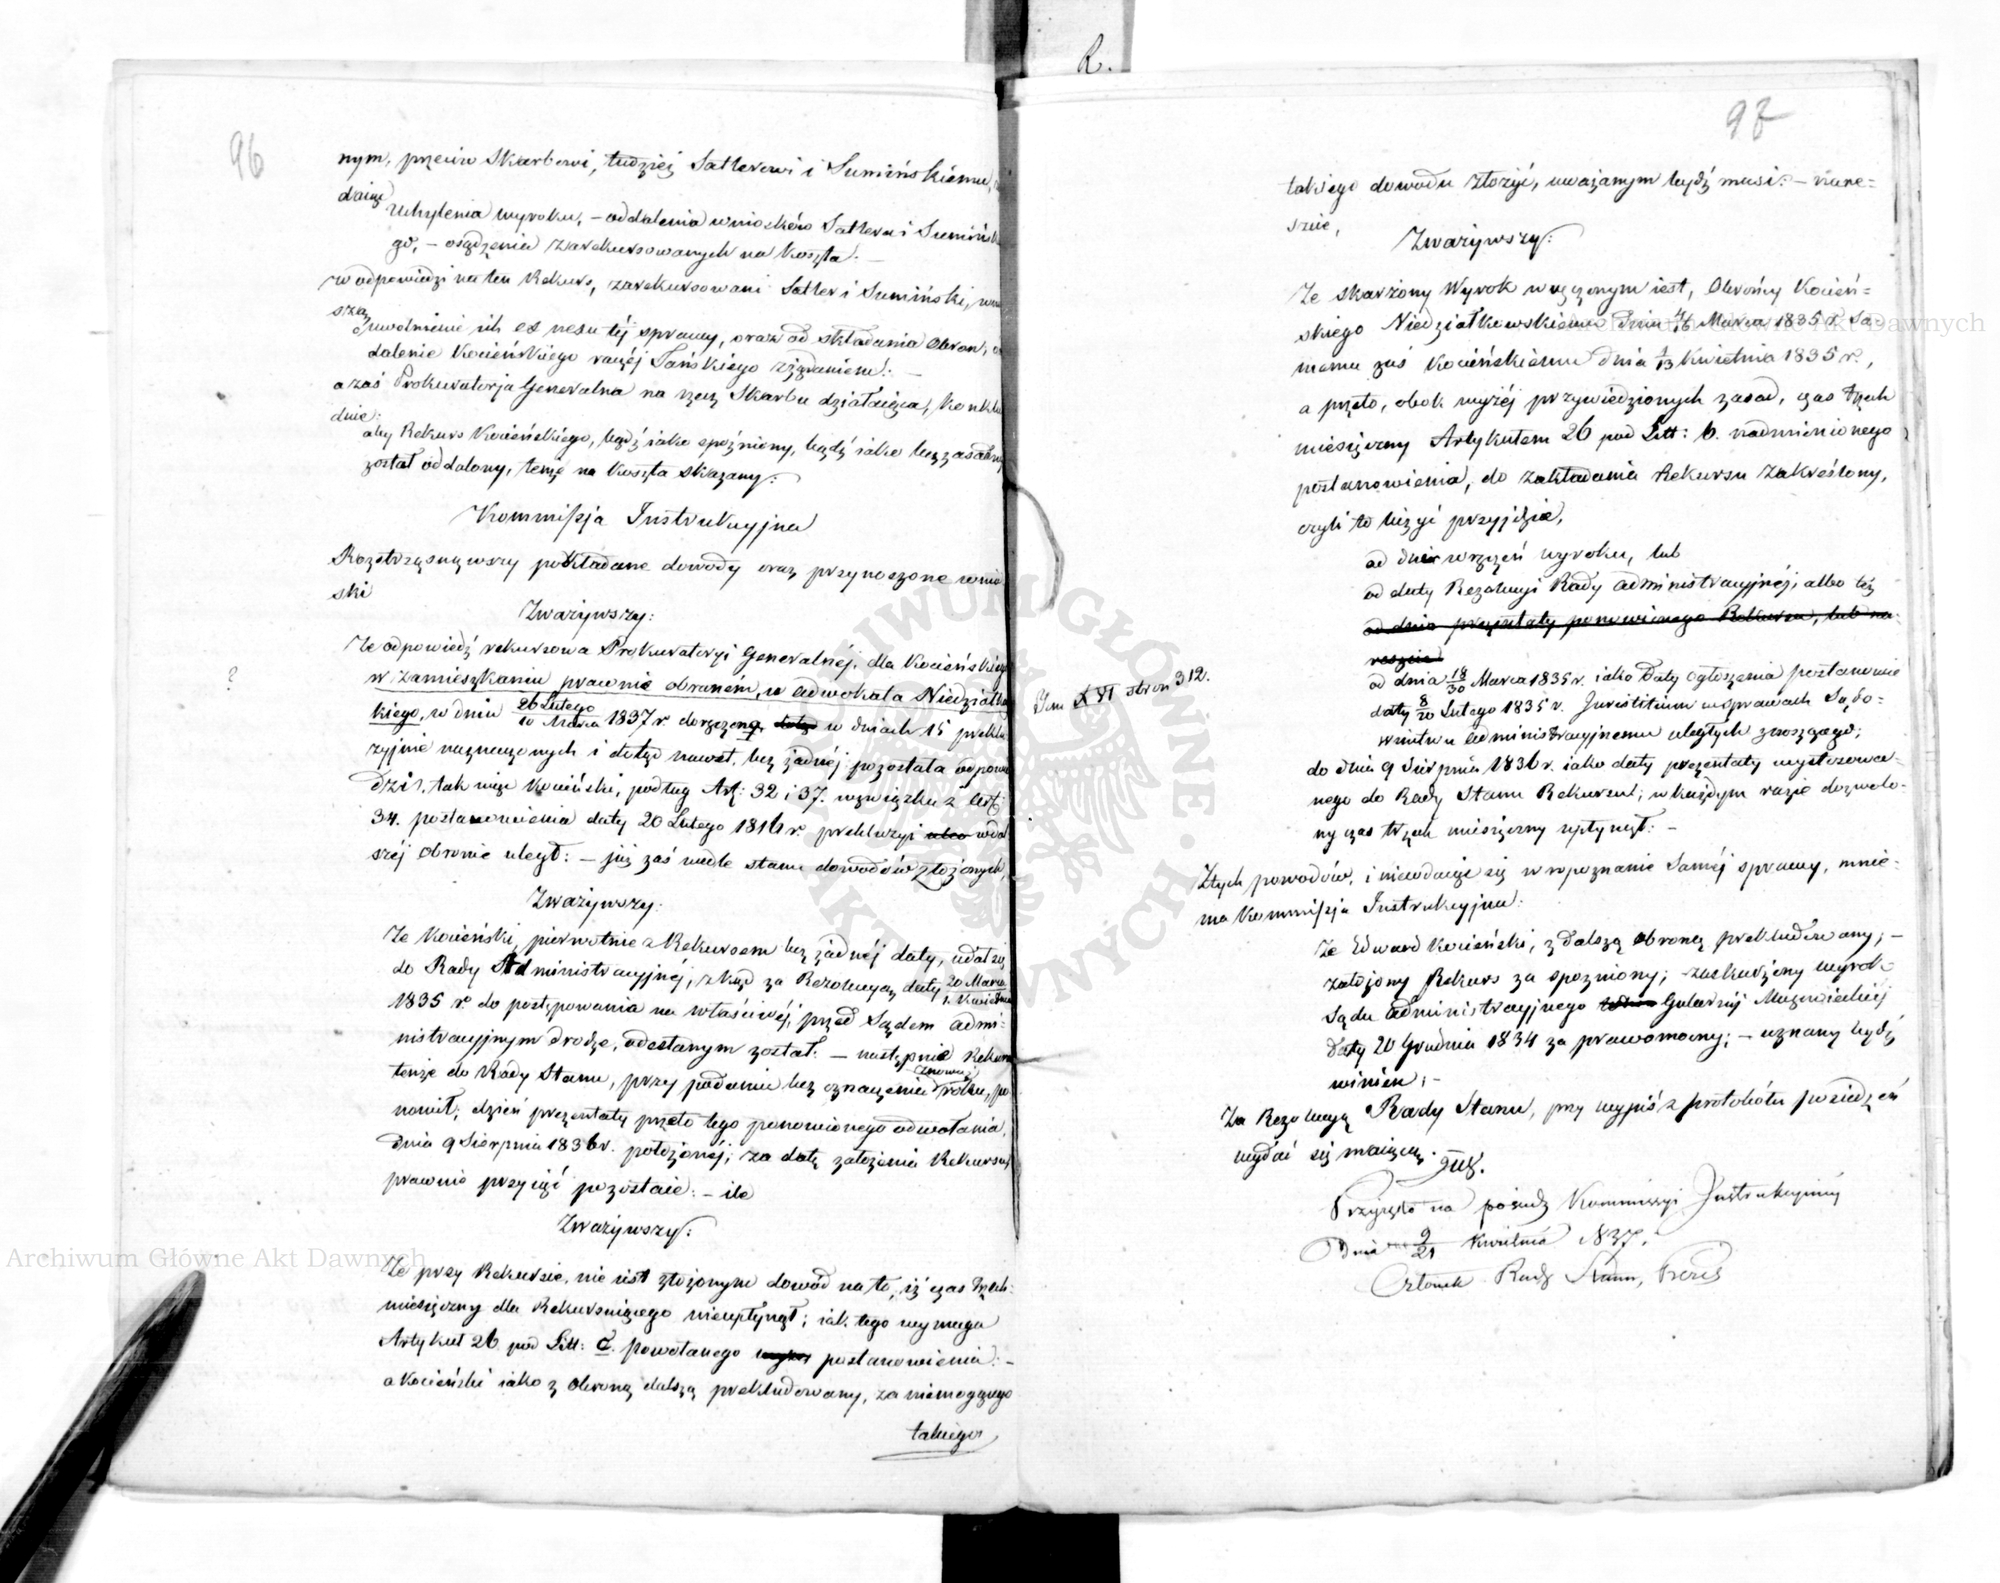 96
nym, przeciw Skarbowi, tudzież Satlerowi i Sumińskiemu,
daiąc
Uchylenia wyroku, – oddalenia wniosków Satlera i Sumińskie
go, – osądzenia zarekursowanych na Koszta. –
w odpowiedzi na ten Rekurs, zarekursowani Satler i Sumiński, wno
szą,
uwolnienie ich ex nexu téj sprawy, oraz od składania Obron,
dalenie Kocieńskiego raczéj Tańskiego żądaniem: –
a zaś Prokuratorja Generalna na rzecz Skarbu działaiąca, konklu
duie:
aby Rekurs Kocieńskiego, bądź iako spóźniony, bądź iako bezzasadny
został oddalony, tenże na Koszta skazany:
Kommissja Instrukcyjna
Roztrząsnąwszy pokładane dowody oraz przynoszone wnio
ski
Zważywszy:
Że odpowiedź rekursowa Prokuratoryi Generalnéj, dla Kocieńskiego
w zamieszkaniu prawnie obraném, u Adwokata Niedziałkows
?
kiego, w dniu 26 Lutego/10 Marca 1837 r. doręczoną w dniach 15 preklu
zyjnie naznaczonych i dotąd nawet, bez żadnéj pozostała odpowie
dzi, tak więc Kocieński, podług Art: 32 i 37. w związku z Art
34. postanowienia daty 20 Lutego 1816 r. prekluzyi w dal
széj obronie uległ: – już zaś wedle stanu dowodów złożonych,
Zważywszy:
Że Kocieński, pierwotnie z Rekursem bez żadnéj daty, udał się
do Rady Administracyjnéj, zkąd za Rezolucyą daty 20 Marca/1. Kwietnia
1835 r. do postępowania na właściwéj, przed Sądem Admi-
nistracyjnym drodze, odesłanym został: – następnie Rekurs
tenże do Rady Stanu, przy podaniu bez oznaczenia znowu roku, po
nowił; dzień prezentaty przeto tego ponowionego odwołania,
dnia 9 Sierpnia 1836 r. położonéj; za datę założenia Rekursu
prawnie przyiąć pozostaie: – ile
Zważywszy:
Że przy Rekursie, nie iest złożonym dowód na to, iż czas trzech-
miesięczny dla Rekursuiącego nieupłynął; iak tego wymaga
Artykuł 26 pod Litt: C. powołanego postanowienia: –
a Kocieński iako z Obroną dalszą prekludowany, za niemogącego
takiego
R.
97
takiego dowodu złożyć, uważanym bydź musi: – nare-
szcie,
Zważywszy:
Że skarżony Wyrok wręczonym iest, Obrońcy Kocień-
skiego Niedziałkowskiemu dniu 4/16 Marca 1835 r. Sa-
memu zaś Kocieńskiemu dnia 1/13 Kwietnia 1835 r.,
a przeto, obok wyżéj przywiedzionych zasad, czas trzech
miesięczny Artykułem 26 pod Litt: b. nadmienionego
postanowienia, do zakładania Rekursu zakreślony,
czyli to liczyć przyjdzie,
od dnia wręczeń wyroku, lub
od daty Rezolucyi Rady Administracyjnéj, albo też
od dnia prezentaty ponowionego Rekursu, lub na-
reszcie
od dnia 18/30 Marca 1835 r. iako Daty ogłoszenia postanowie
Tom XVI stron 312.
daty 8/20 Lutego 1835 r. Juristitium w sprawach Sądo-
wnictwu Administracyjnemu uległych znoszącego;
do dnia 9 Sierpnia 1836 r. iako daty prezentaty wystosowa-
nego do Rady Stanu Rekursu; w każdym razie dozwolo-
ny czas trzech miesięczny upłynął: –
Z tych powodów, i niewdaiąc się w rozpoznanie Saméj sprawy, mnie-
ma Kommissja Instrukcyjna:
Że Edward Kocieński, z dalszą obroną prekludowany; –
założony Rekurs za spóźniony; – zaskarżony wyrok
Sądu Administracyjnego Gubernij Mazowieckiej
Daty 20 Grudnia 1834 za prawomocny; – uznany bydź
winien; –
Za Rezolucyą Rady Stanu, przy wypis z protokółu posiedzeń
wydać się maiącą.
Przyjęto na posiedz. Kommissyi Instrukcyjnéj
Dnia 9/21 Kwietnia 1837.
Członek Rady Stanu, Prezes
Archiwum Główne Akt Dawnych
Archiwum Główne Akt Dawnych
ARCHIWUM GŁÓWNE · AKT DAWNYCH ·